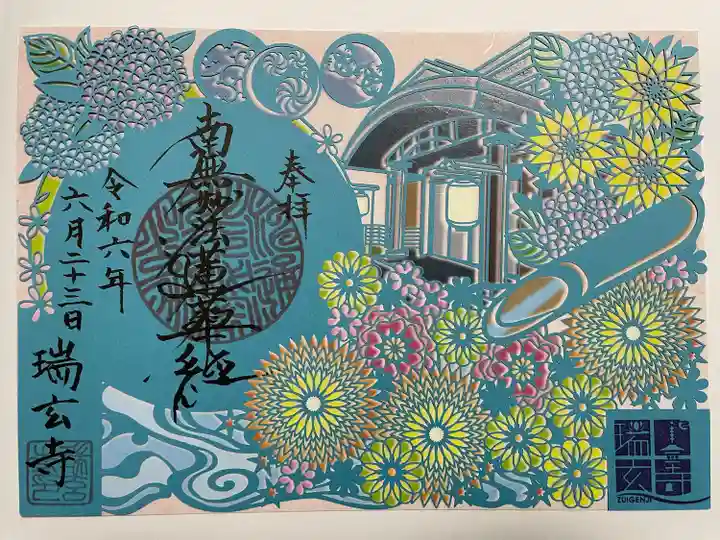 奉拝
南無妙法蓮華経
令和六年
六月二十三日
瑞玄寺
瑞玄
ZUIGENJI